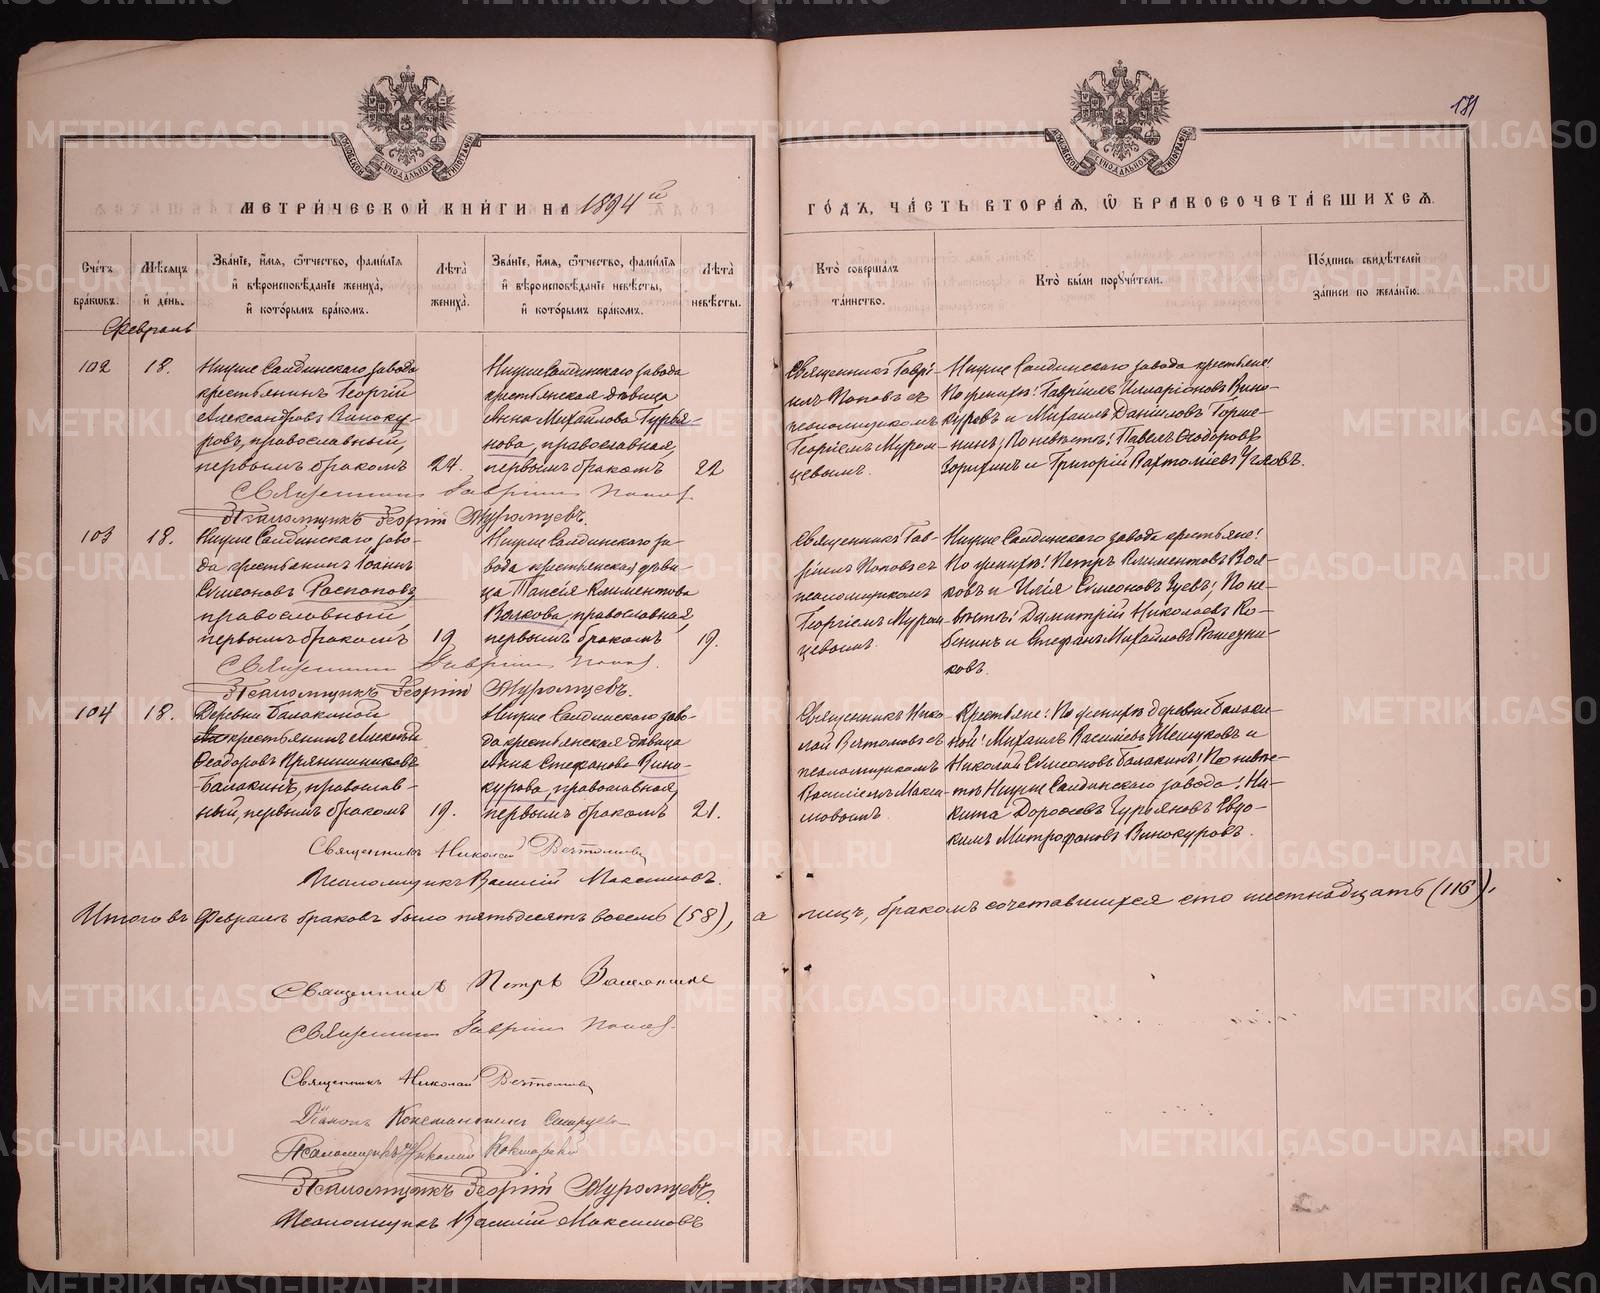 181
МЕТРИ́ЧЕСКОЙ КНИ́ГИ НА 1894й
ГО́ДЪ, ЧА́СТЬ ВТОРА́Я, Ѿ БРАКОСОЧЕТА́ВШИХСЯ.
Сче́тъ бра́ковъ.
Мѣ́сяцъ и҆ де́нь.
Зва́нїе, и҆́мя, ѻ҆́тчество, фами́лїя
и҆ вѣроисповѣ́данїе жениха̀,
и҆ кото́рымъ бра́комъ.
Лѣ́та жениха̀.
Зва́нїе, и҆́мя, ѻ҆́тчество, фами́лїя
и҆ вѣроисповѣ́данїе невѣ́сты,
и҆ кото́рымъ бра́комъ.
Лѣ́та невѣ́сты.
Кто̀ соверша́лъ
та́инство.
Кто̀ бы́ли порꙋчи́тели.
По́дпись свидѣ́телей
за́писи по жела́нїю.
Февраль
102
18.
Нижне Салдинскаго завода
крестьянинъ Георгій
Александровъ Виноку-
ровъ, православный,
первымъ бракомъ
24.
Нижне Салдинскаго завода
крестьянская дѣвица
Анна Михайлова Гурья-
нова, православная,
первымъ бракомъ
22
Священникъ Гаврі-
илъ Поповъ съ
псаломщикомъ
Георгіемъ Муром-
цевымъ.
Нижне Салдинскаго завода крестьяне:
По женихѣ: Гавріилъ Иларіоновъ Вино-
куровъ и Михаилъ Даниловъ
По невѣстѣ: Павелъ Ѳеодоровъ
Зорихинъ и Григорій
Священникъ Гавріилъ Поповъ
Псаломщикъ Георгій Муромцевъ.
103
18.
Нижне Салдинскаго заво-
да крестьянинъ Іоаннъ
Симеоновъ Распоповъ
православный,
первымъ бракомъ
19
Нижне Салдинскаго за-
вода крестьянская дѣви-
ца Таисія Климентова
Волкова, православная,
первымъ бракомъ
19.
Священникъ Гав-
ріилъ Поповъ съ
псаломщикомъ
Георгіемъ Муром-
цевымъ.
Нижне Салдинскаго завода крестьяне:
По женихѣ: Петръ Климентовъ Вол-
ковъ и Илія Симеоновъ Зуевъ; По не-
вѣстѣ: Димитрій Николаевъ Ко-
бенинъ и Стефанъ Михайловъ Решетни-
ковъ.
Священникъ Гавріилъ Поповъ.
Псаломщикъ Георгій Муромцевъ.
104
18.
Деревни Балакиной
крестьянинъ Алексѣй
Ѳеодоровъ Прянишниковъ
Балакинъ, православ-
ный, первымъ бракомъ
19.
Нижне Салдинскаго заво-
да крестьянская дѣвица
Анна Стефанова Вино-
курова, православная,
первымъ бракомъ
21.
Священникъ Нико-
лай Вечтомовъ съ
псаломщикомъ
Василіемъ Макси-
мовымъ.
Крестьяне: По женихѣ деревни Балаки-
ной: Михаилъ Василіевъ Шешуковъ и
Николай Симеоновъ Балакинъ; По невѣс-
тѣ Нижне Салдинскаго завода: Ни-
кита Дороѳеевъ Гурьяновъ Евдо-
кимъ Митрофановъ Винокуровъ.
Священникъ Николай Вечтомовъ
Псаломщикъ Василій Максимовъ.
Итого въ Февралѣ браковъ было пятьдесятъ восемь (58), а лицъ, бракомъ сочетавшихся сто шестнадцать (116).
Священникъ Петръ
Священникъ Гавріилъ Поповъ.
Священникъ Николай Вечтомовъ
Діаконъ Константинъ
Псаломщикъ Николай
Псаломщикъ Георгій Муромцевъ.
Псаломщикъ Василій Максимовъ
METRIKI.GASO-URAL.RU